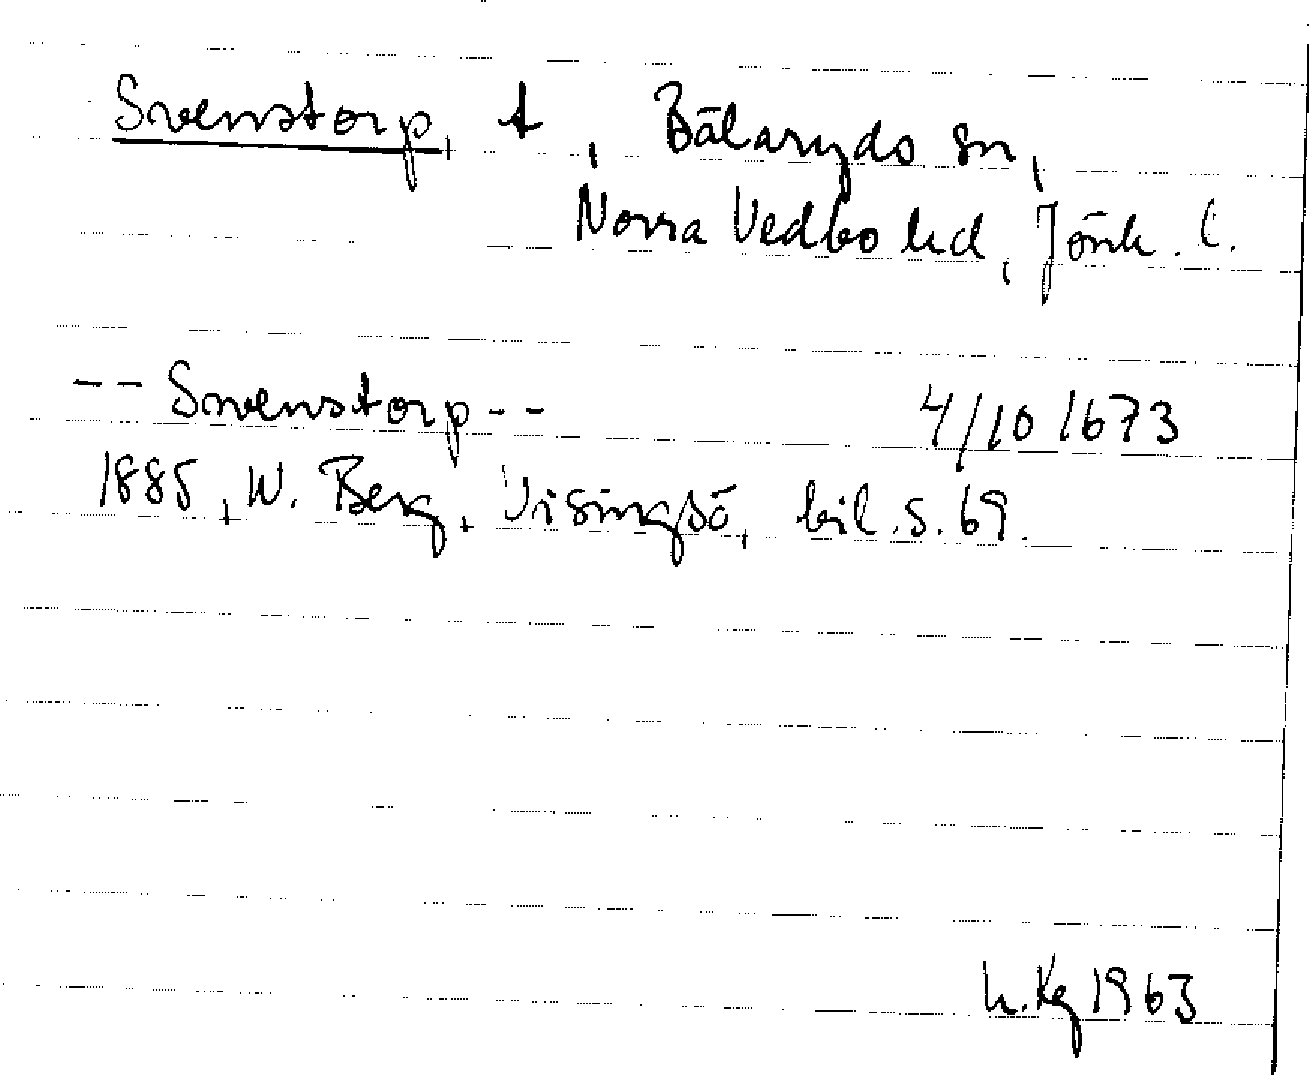 Svenstorp, t , Bälaryds sn,
Norra Vedbo hd, Jönk. l.
-- Swenstorp -- 4/10 1673
1885, W. Berg, Visingsö, bil. s. 69.
h. Kg 1963